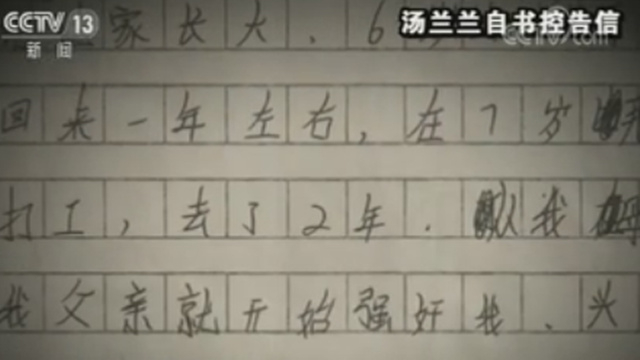 CCTV 13
新闻
汤兰兰自书控告信
家长大、6
回来一年左右,在7岁
打工,去了2年.我
我父亲就开始强奸我、兴